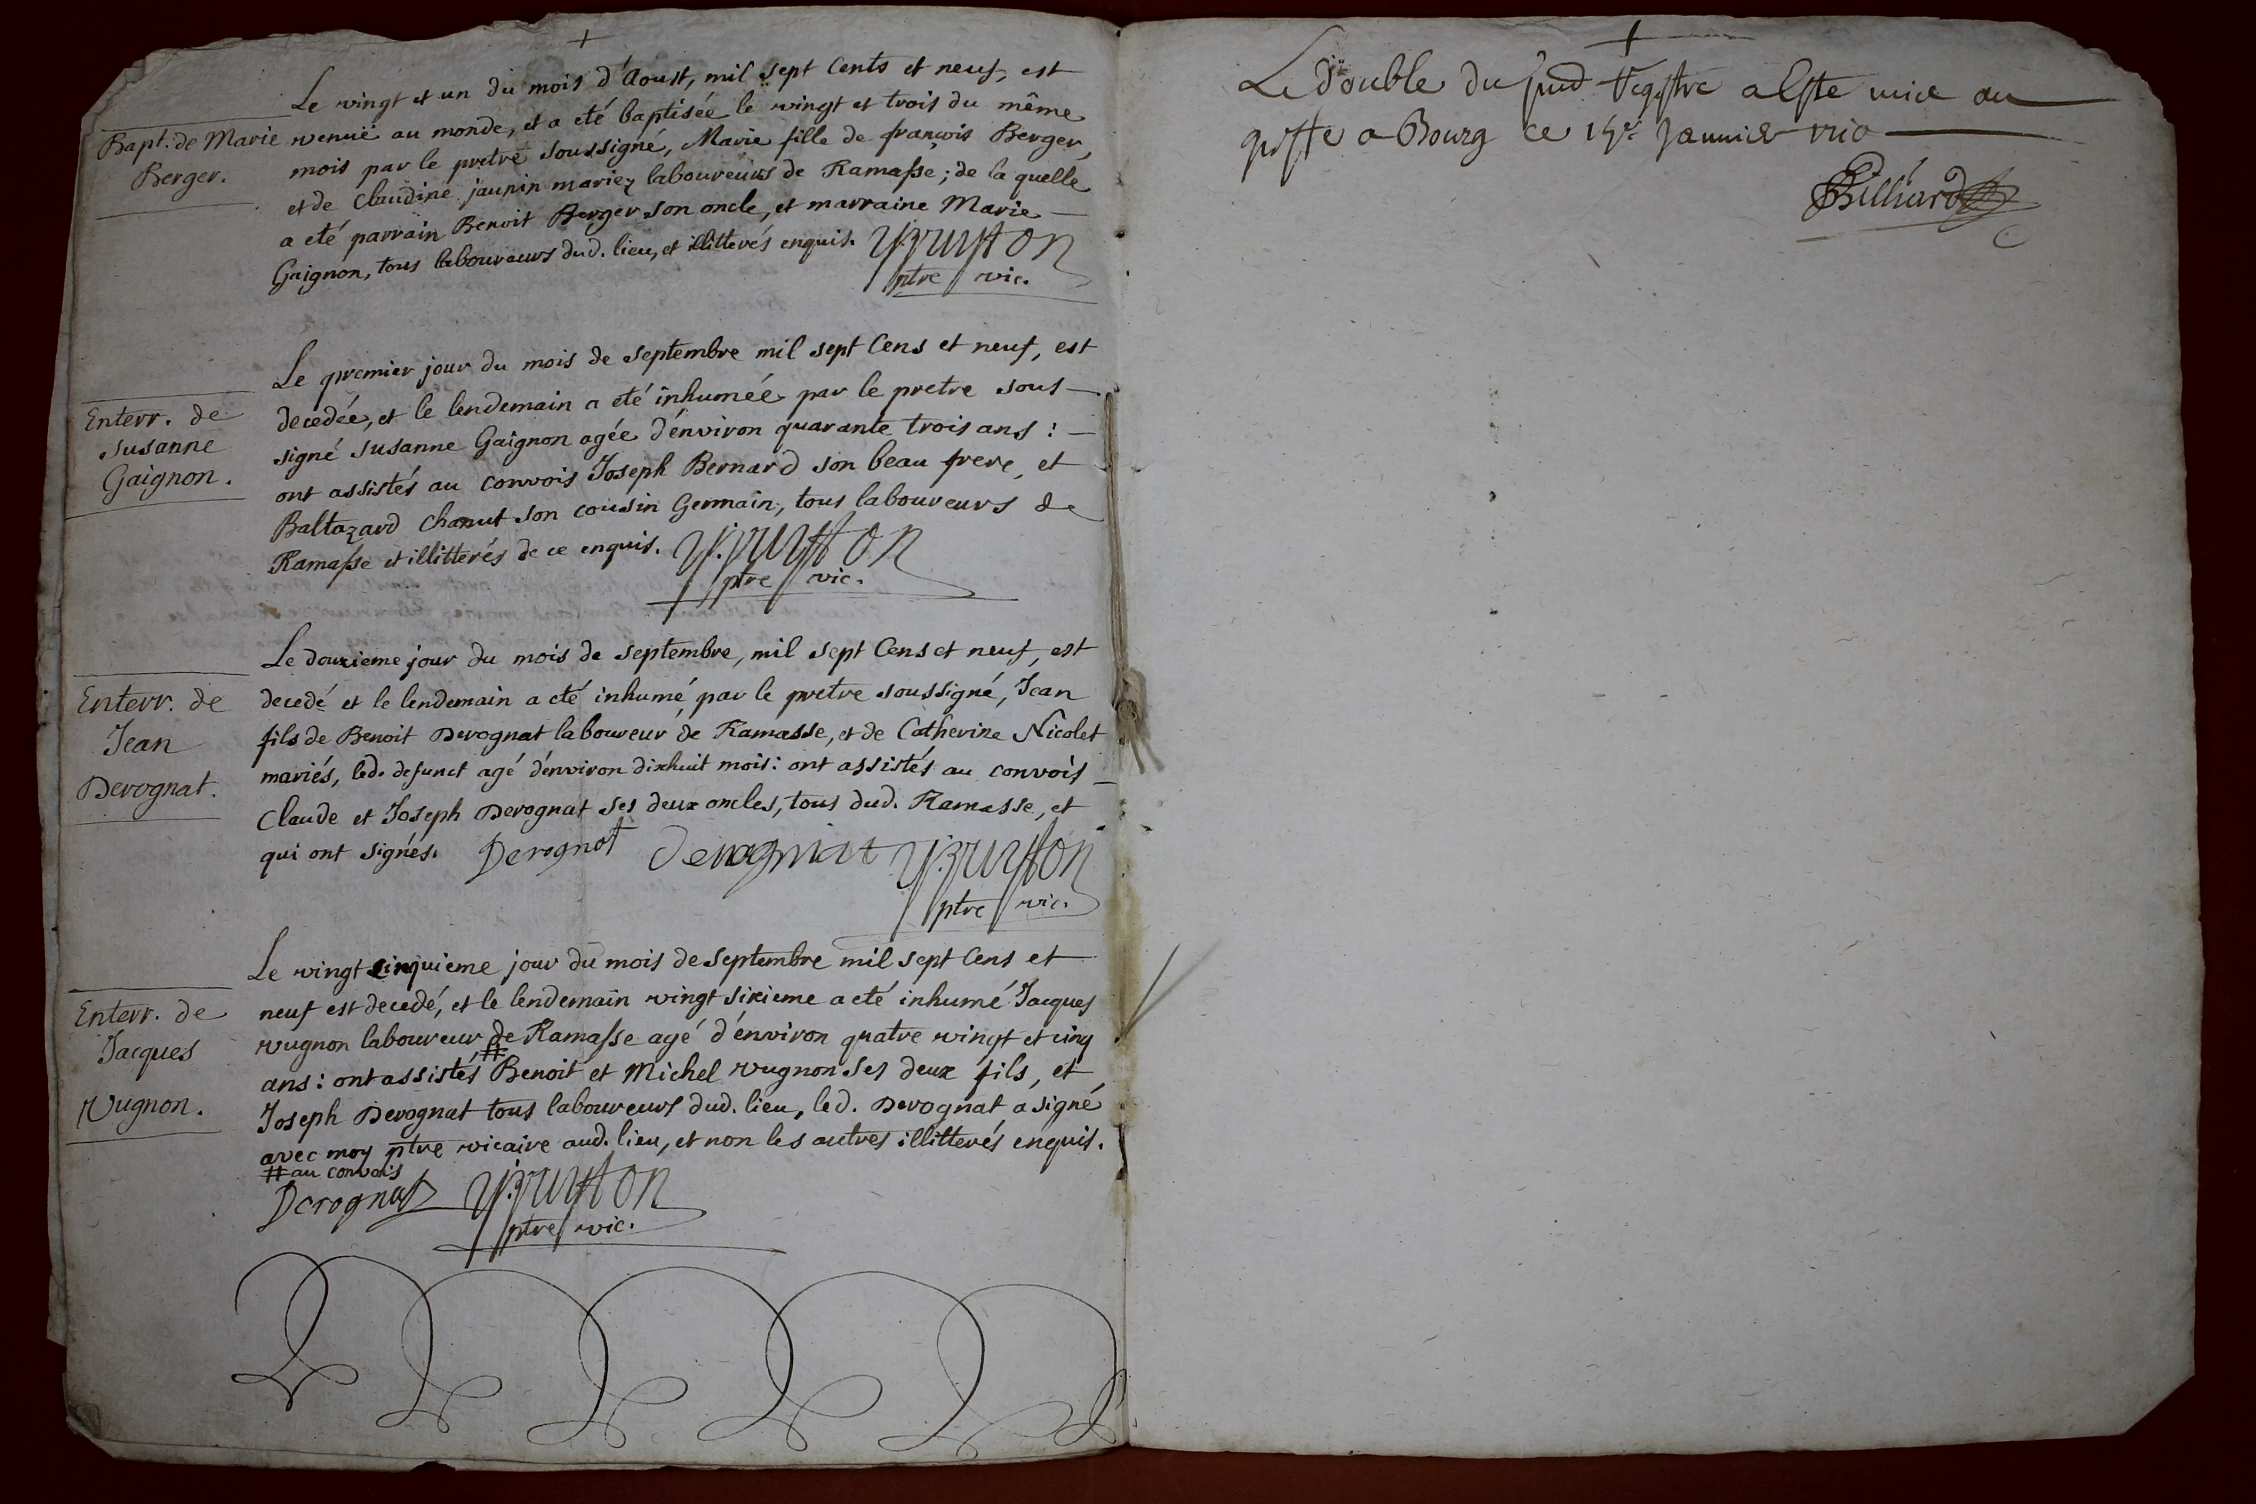 Bapt. de Marie
Berger.
Le vingt et un du mois d'Aoust, mil sept cents et neuf, est
venuë au monde, et a eté baptisée le vingt et trois du même
mois par le pretre soussigné, Marie fille de françois Berger,
et de Claudine jaunin mariez laboureurs de Ramasse; de la quelle
a eté parrain Benoit Berger son oncle, et marraine Marie
Gaignon, tous laboureurs dud. lieu, et illitterés enquis.
ptre vic.
Enterr. de
Susanne
Gaignon.
Le premier jour du mois de septembre mil sept Cens et neuf, est
decedée, et le lendemain a eté inhumée par le pretre sous-
signé Susanne Gaignon agée d'énviron quarante trois ans :
ont assistés au convois Joseph Bernard son beau frere, et
Baltazard Chanut son cousin Germain, tous laboureurs de
Ramasse et illitterés de ce enquis.
ptre vic.
Enterr. de
Jean
Derognat.
Le douzieme jour du mois de septembre, mil sept Cens et neuf, est
decedé et le lendemain a eté inhumé par le pretre soussigné, Jean
fils de Benoit Derognat laboureur de Ramasse, et de Catherine Nicolet
mariés, led. defunct agé d'énviron dixhuit mois: ont assistés au convois
Claude et Joseph Derognat ses deux oncles, tous dud. Ramasse, et
qui ont signés. Derognat Derognat
ptre vic.
Enterr. de
Jacques
Vugnon.
Le vingt cinquieme jour du mois de Septembre mil sept Cens et
neuf est decedé, et le lendemain vingt sixieme a eté inhumé Jacques
vugnon laboureur de Ramasse agé d'énviron quatre vingt et cinq
ans : ont assistés # Benoit et Michel vugnon ses deux fils, et
Joseph Derognat tous laboureurs dud. lieu, led. Derognat a signé
avec moy ptre vicaire aud. lieu, et non les autres illitterés enquis.
# au convois
Derognat
ptre vic.
Le double du registre a Este mis au
greffe a Bourg ce Januier 1710
Billiard